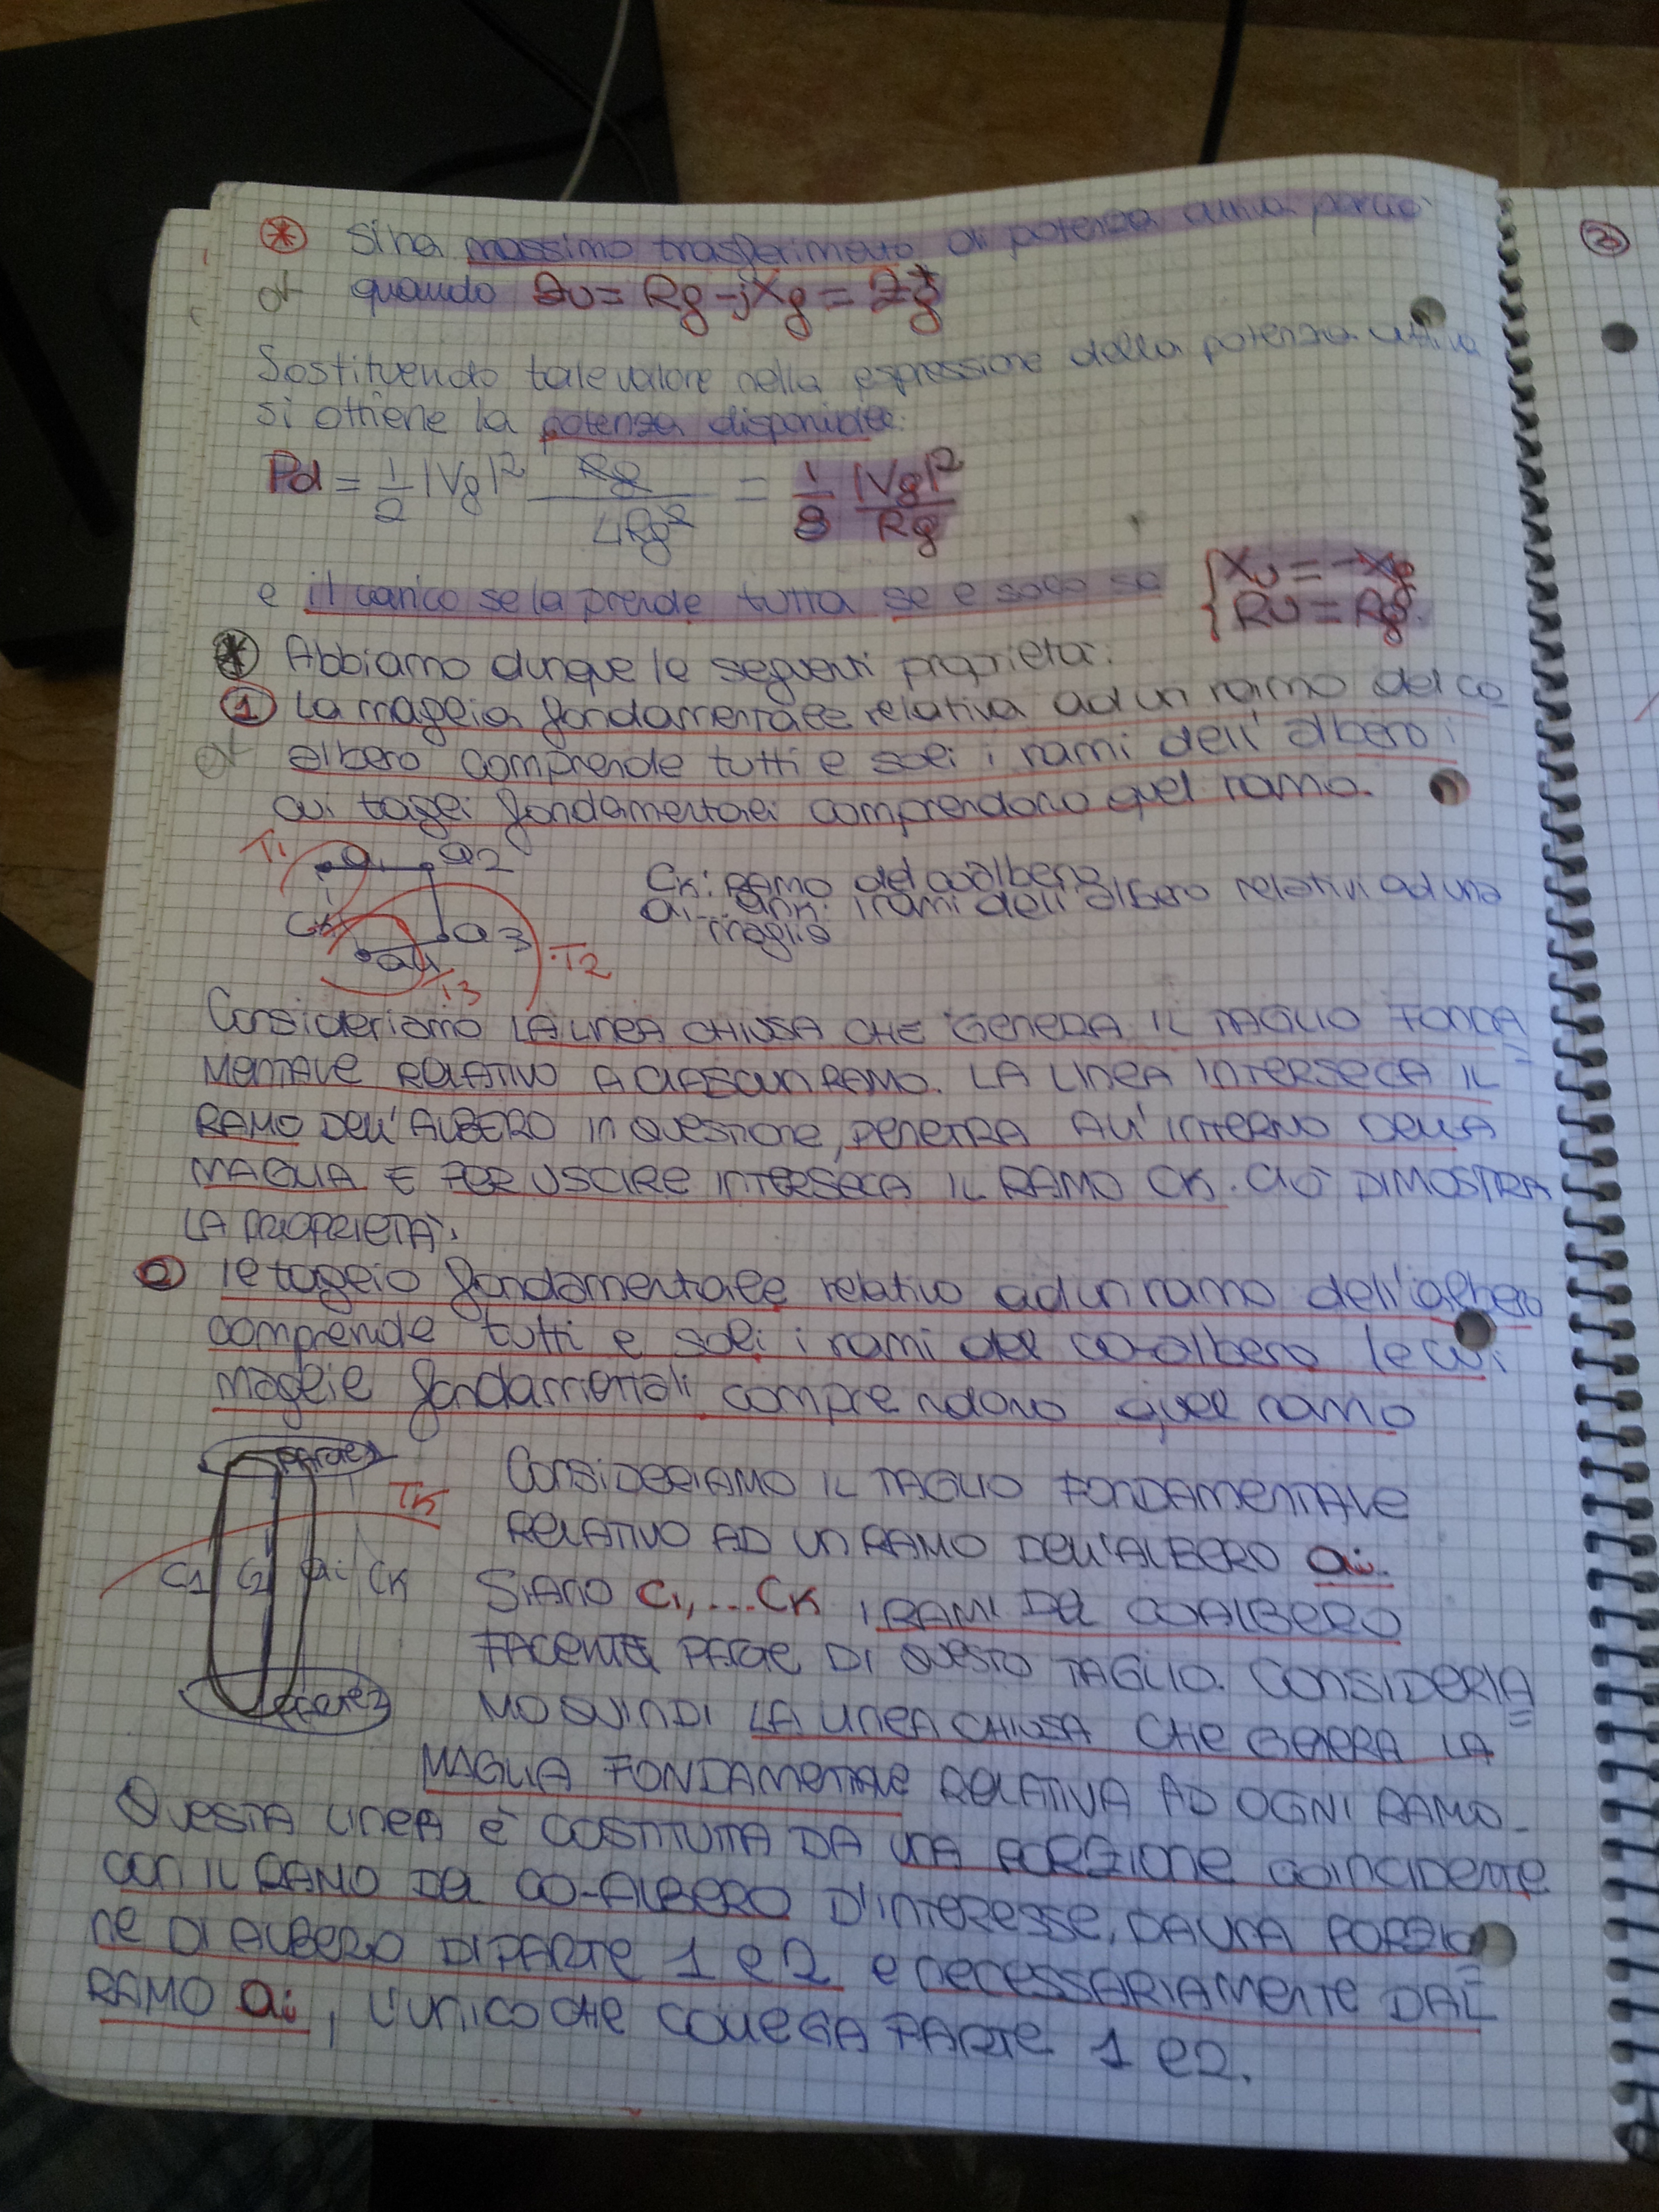 * Si ha massimo trasferimento di potenza attiva perciò
quando Zu = Rg - jXg = Zg*
Sostituendo tale valore nella espressione della potenza attiva
si ottiene la potenza disponibile:
Pd = 1/2 |Vg|² Rg / 4Rg² = 1/8 |Vg|² / Rg
e il carico se la prende tutta se e solo se { Xu = -Xg
Ru = Rg.
* Abbiamo dunque le seguenti proprietà:
1 La maglia fondamentale relativa ad un ramo del co
albero comprende tutti e soli i rami dell'albero i
cui tagli fondamentali comprendono quel ramo.
T1 a1 a2
Ck a3 T2
a4 T3
Ck: ramo del coalbero
a1... : i rami dell'albero relativi ad una
maglia
Consideriamo LA LINEA CHIUSA CHE GENERA IL TAGLIO FONDA=
MENTALE RELATIVO A CIASCUN RAMO. LA LINEA INTERSECA IL
RAMO DELL'ALBERO IN QUESTIONE, PENETRA ALL'INTERNO DELLA
MAGLIA E PER USCIRE INTERSECA IL RAMO CK. CIÒ DIMOSTRA
LA PROPRIETÀ.
2 Il taglio fondamentale relativo ad un ramo dell'albero
comprende tutti e soli i rami del co-albero le cui
maglie fondamentali comprendono quel ramo
PARTE 1
TK
C1 C2 ai CK
PARTE 2
CONSIDERIAMO IL TAGLIO FONDAMENTALE
RELATIVO AD UN RAMO DELL'ALBERO ai.
SIANO C1,...CK i RAMI DEL COALBERO
FACENTE PARTE DI QUESTO TAGLIO. CONSIDERIA=
MO QUINDI LA LINEA CHIUSA CHE GENERA LA
MAGLIA FONDAMENTALE RELATIVA AD OGNI RAMO.
QUESTA LINEA È COSTITUITA DA UNA PORZIONE COINCIDENTE
CON IL RAMO DEL CO-ALBERO D'INTERESSE, DA UNA PORZIO=
NE DI ALBERO DI PARTE 1 e 2 e NECESSARIAMENTE DAL
RAMO ai, L'UNICO CHE COLLEGA PARTE 1 e 2.